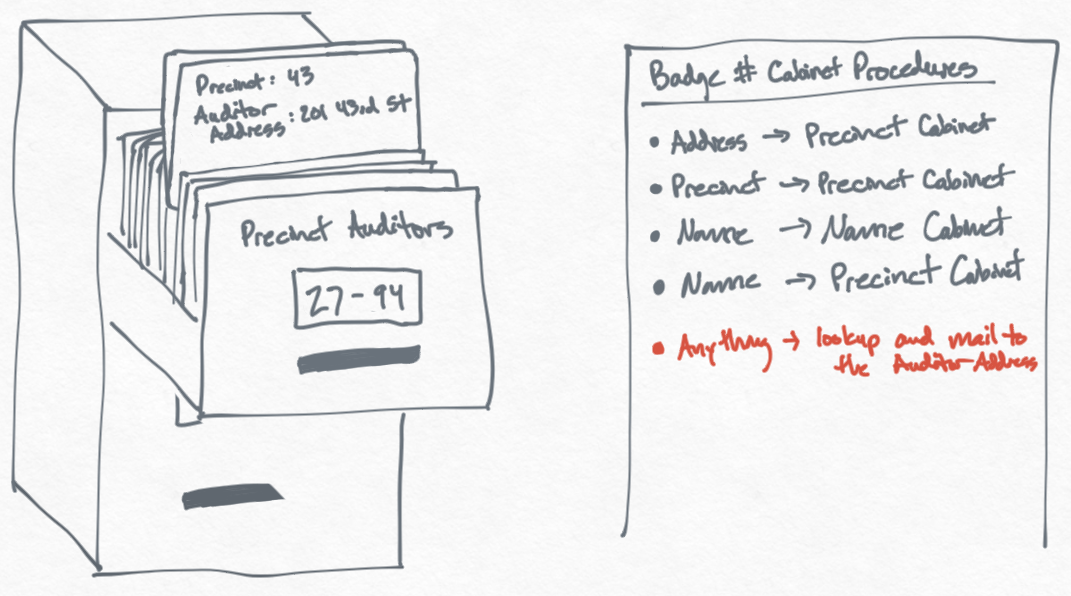 Precinct: 43
Auditor
Address : 201 43rd St
Precinct Auditors
27-94
Badge # Cabinet Procedures
• Address → Precinct Cabinet
• Precinct → Precinct Cabinet
• Name → Name Cabinet
• Name → Precinct Cabinet
• Anything → lookup and mail to
the Auditor-Address